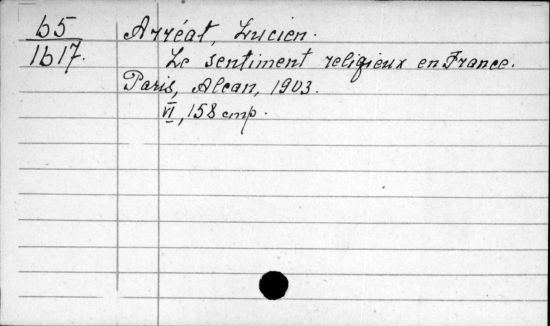 65
1617.
Arréat, Lucien.
Le sentiment religieux en France.
Paris, Alcan, 1903.
VI, 158 cmp.